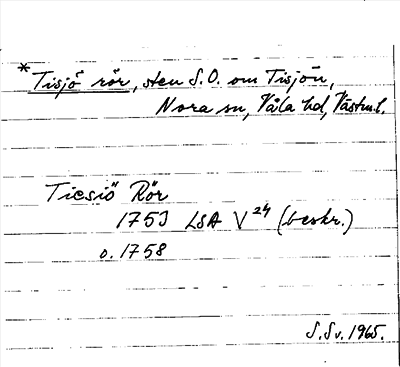 * Tisjö rör, sten S.O. om Tisjön,
Nora sn, Våla hd, Västml.
Ticsiö Rör
1753 LSA V 24 (beskr.)
o. 1758
S.Sv. 1965.